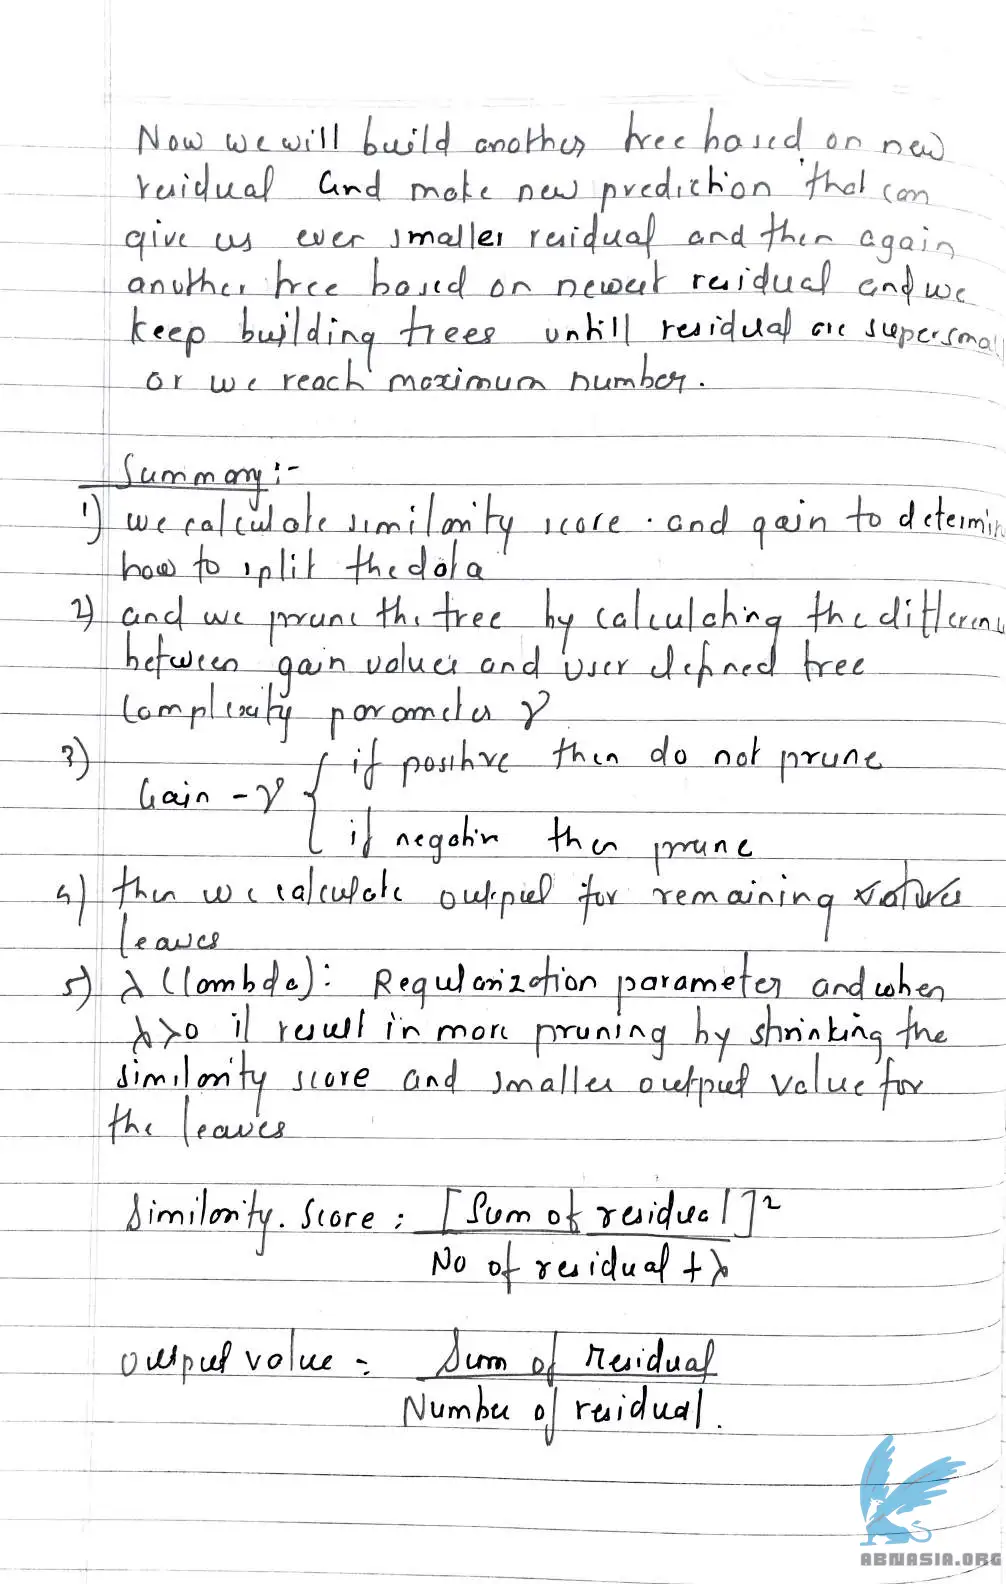 Now we will build another tree based on new
residual and make new prediction that can
give us even smaller residual and then again
another tree based on newest residual and we
keep building trees untill residual are supersmall
or we reach maximum number.
Summary :-
1) we calculate similarity score. and gain to determin
how to split the data
2) and we prune the tree by calculating the differenc
between gain values and user defined tree
complexity parameter γ
3)
if positive then do not prune
Gain - γ {
if negative then prune
4) then we calculate output for remaining
leaves
5) λ (lambda): Regularization parameter and when
λ>0 it result in more pruning by shrinking the
similarity score and smaller output value for
the leaves
Similarity. Score : [Sum of residual]²
No of residual + λ
output value = Sum of Residual
Number of residual.
ABNASIA.ORG